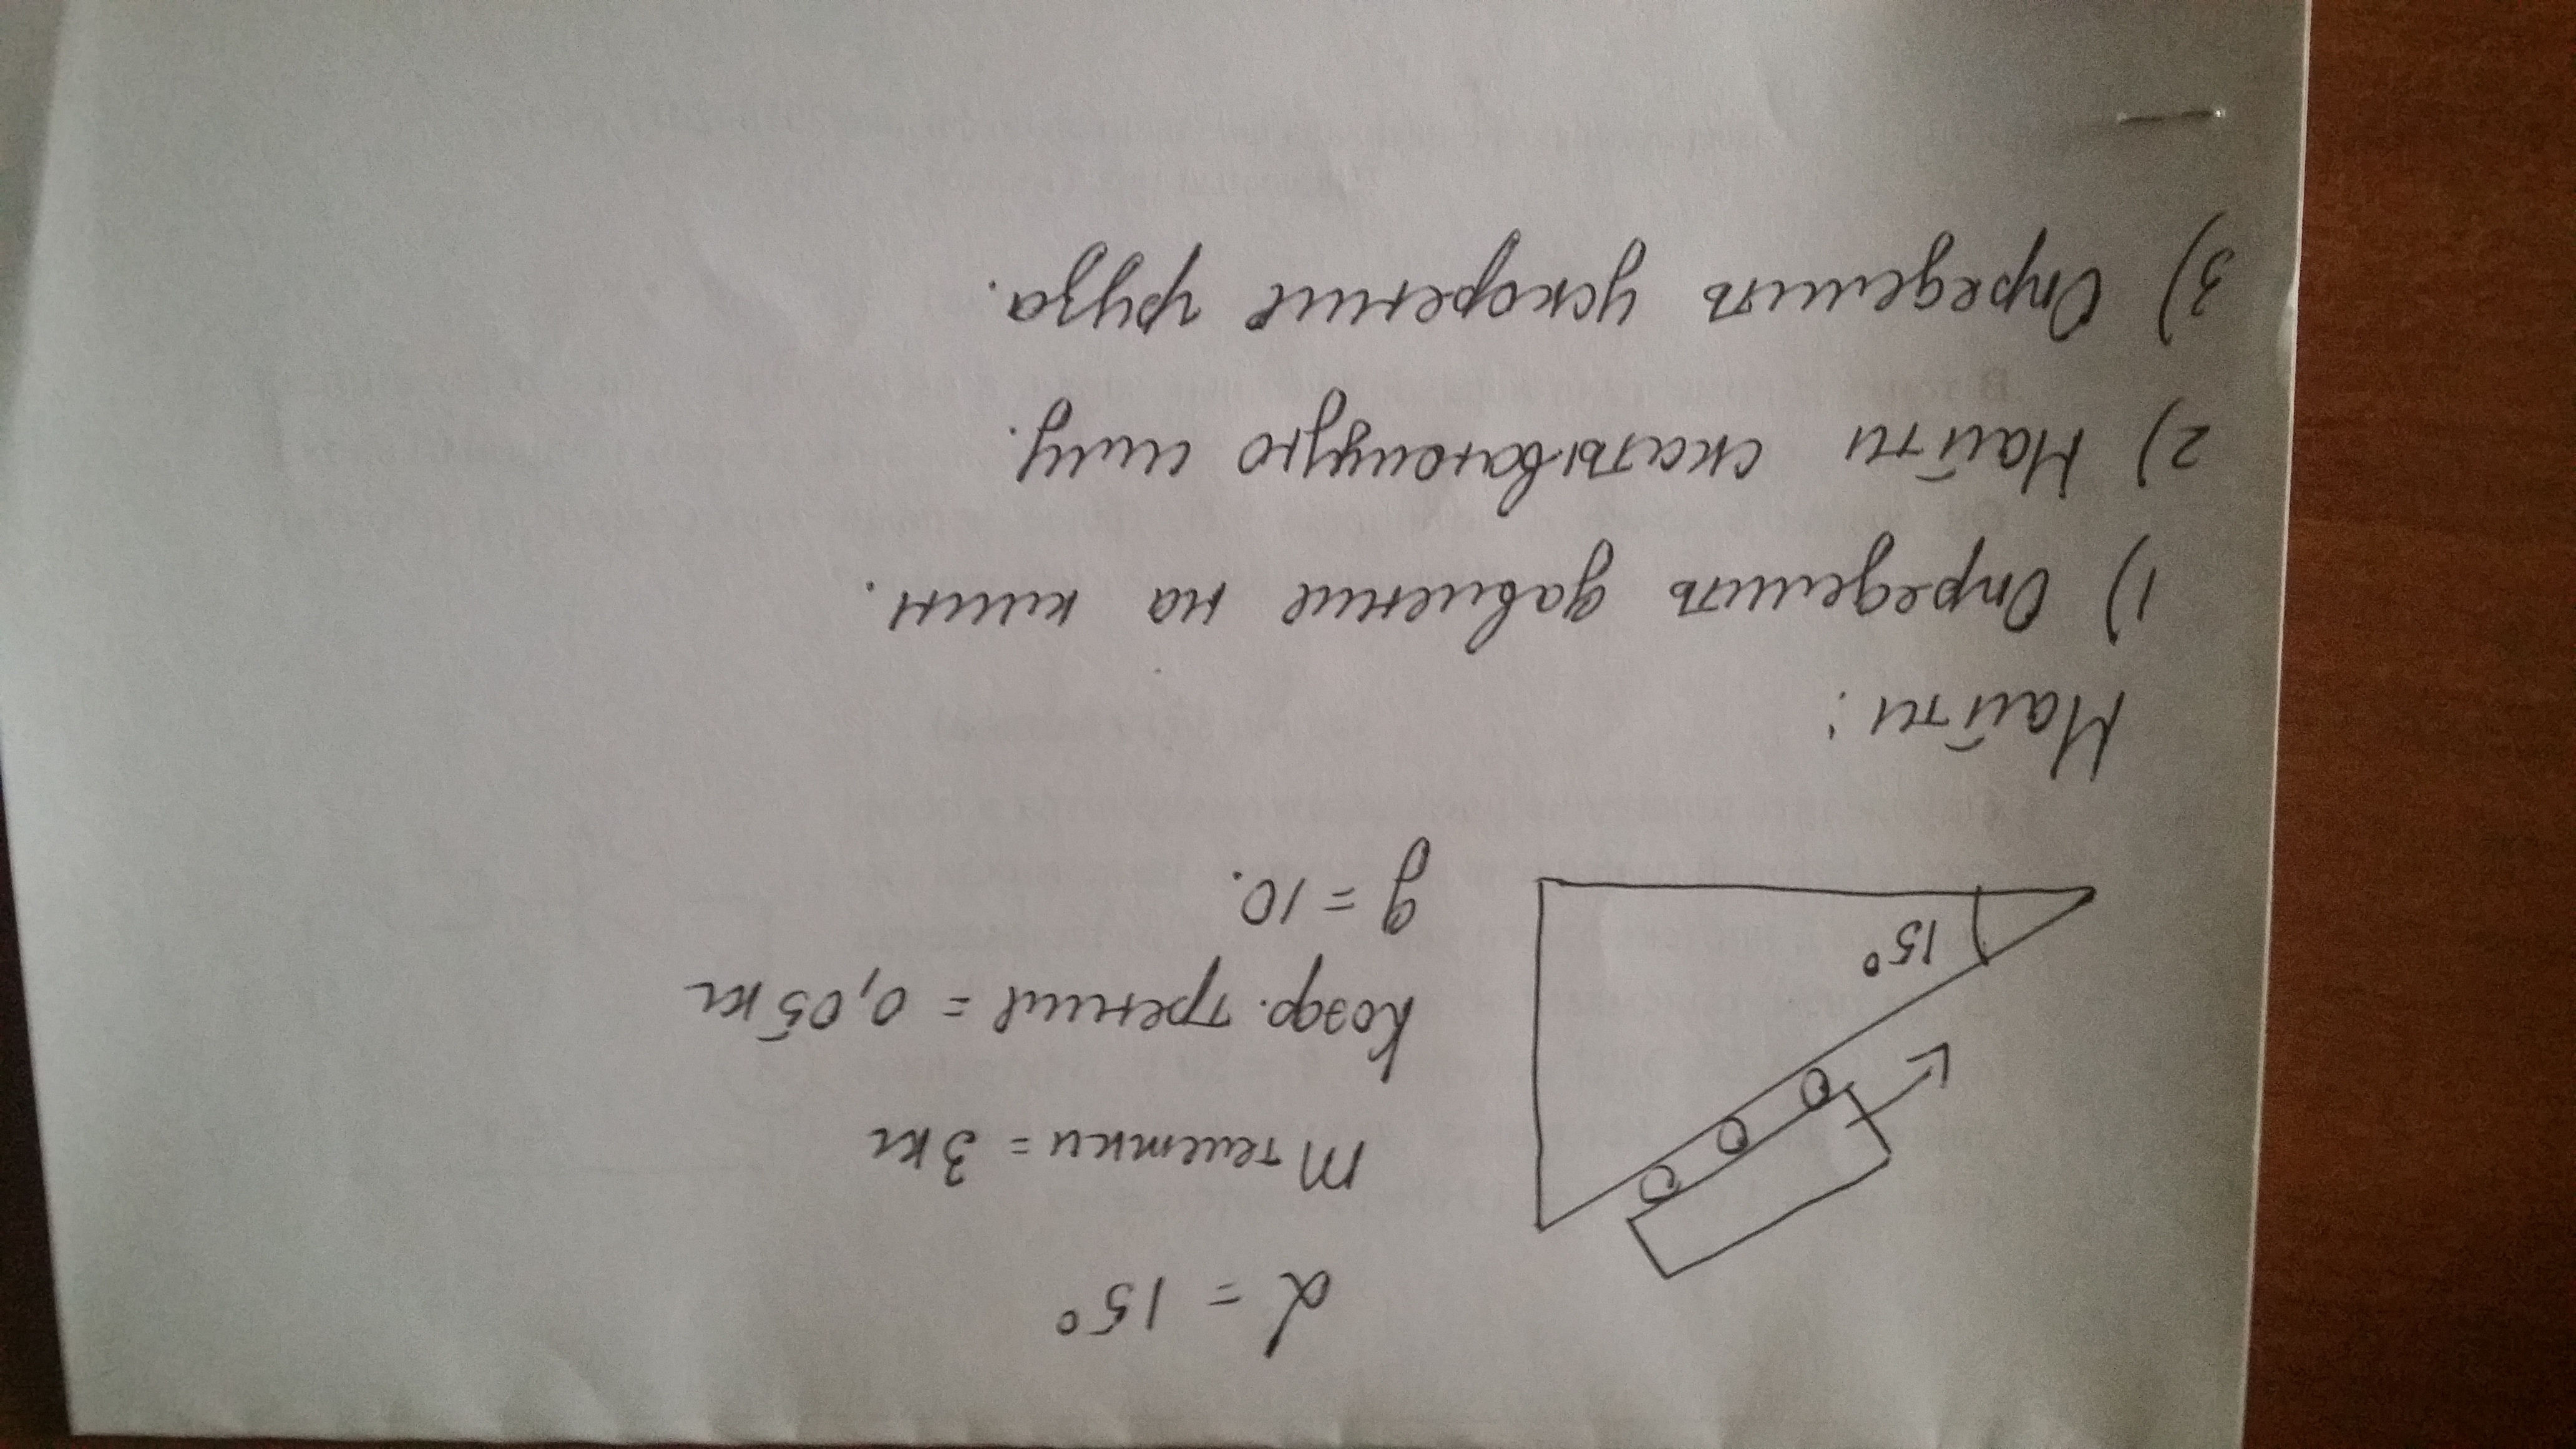 α = 15°
m тележки = 3 кг
Коэф. трение = 0,05 кг
g = 10.
15°
Найти:
1) Определить давление на клин.
2) Найти скатывающую силу.
3) Определить ускорение груза.